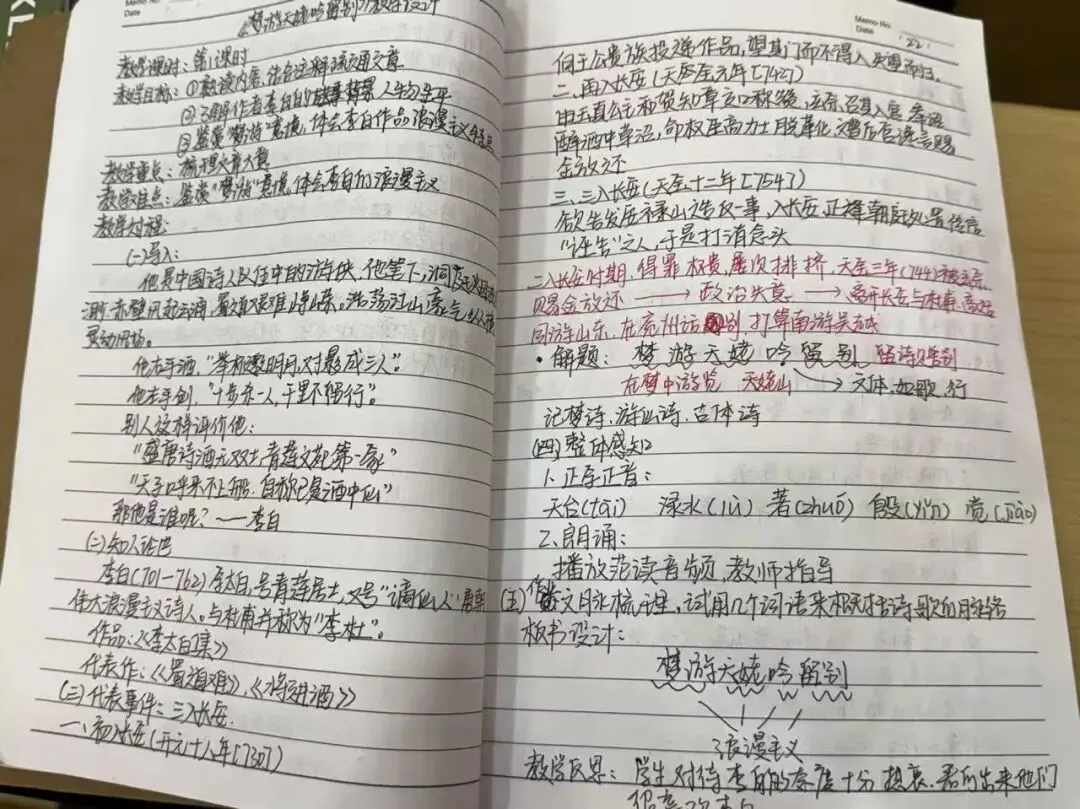 《梦游天姥吟留别》教学设计
教学课时：第1课时
教学目标：①熟读内容，结合注释疏通文章
②了解作者李白的人物生平
③鉴赏"梦游"意境，体会李白作品浪漫主义特色
教学重点：梳理文章大意
教学难点：鉴赏"梦游"意境，体会李白的浪漫主义
教学过程：
(一)导入：
他是中国诗人队伍中的游侠，他笔下，洞庭
测，赤壁风起云涌，蜀道艰难峥嵘。浩荡江山，豪气纵横
灵动飞扬。
他右手酒，"举杯邀明月，对影成三人"。
他左手剑，"十步杀一人，千里不留行"。
别人这样评价他：
"盛唐诗酒无双士，青莲文苑第一家"
"天子呼来不上船，自称臣是酒中仙"
那他是谁呢？——李白
(二)知人论世
李白(701-762)字太白，号青莲居士，又号"谪仙人"唐朝
伟大浪漫主义诗人。与杜甫并称为"李杜"。
作品：《李太白集》
代表作：《蜀道难》，《将进酒》
(三)代表事件：三入长安.
一、初入长安(开元十八年[730])
Memo No.
Date
22
向王公贵族投递作品，望其门而不得入，失望而归。
二、再入长安(天宝元年[742])
由玉真公主和贺知章交口称赞，玄宗召其入宫
醉酒中草诏，命权臣高力士脱靴，遭后宫谗言赐
金放还
三、三入长安(天宝十二年[754])
欲告发安禄山造反一事，入长安，正撞朝廷处置传信
"诬告"之人，于是打消念头
二入长安时期，得罪权贵，屡次排挤，天宝三年(744)被玄宗
赐金放还 ——→ 政治失意 ——→ 离开长安与杜甫、高适
同游山东，在兖州话别 打算南游吴越
·解题：梦游天姥吟留别 留诗赠别
在梦中游览 天姥山 → 文体，如歌、行
记梦诗、游仙诗、古体诗
(四)整体感知
1、正字正音：
天台(tāi) 渌水(lù) 著(zhuó) 殷(yǐn) 觉(jiào)
2、朗诵：
播放范读音频，教师指导
(五)文脉梳理，试用几个词语来概括诗歌的脉络
板书设计：
梦游天姥吟留别
浪漫主义
教学反思：学生对待李白的态度十分热衷，看的出来他们